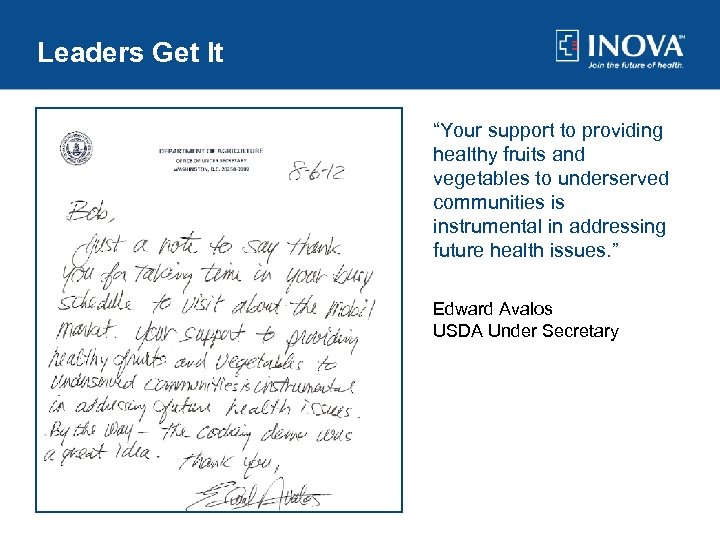 Leaders Get It
INOVA™
Join the future of health.
DEPARTMENT OF AGRICULTURE
OFFICE OF UNDER SECRETARY
WASHINGTON, D.C. 20250-0109
8-6-12
Bob,
Just a note to say thank
you for taking time in your busy
schedule to visit about the mobil
market. Your support to providing
healthy fruits and vegetables to
underserved communities is instrumental
in addressing future health issues.
By the way – the cooking demo was
a great idea. Thank you,
Edward Avalos
“Your support to providing
healthy fruits and
vegetables to underserved
communities is
instrumental in addressing
future health issues. ”
Edward Avalos
USDA Under Secretary